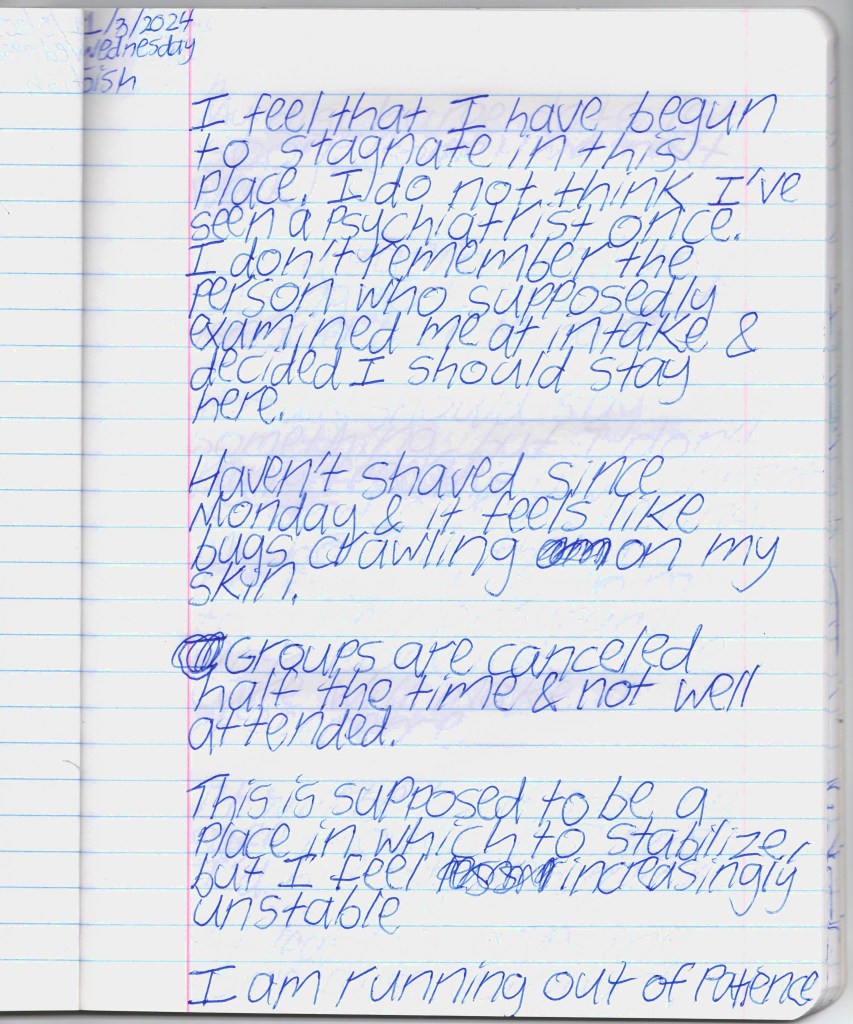 1/3/2024
Wednesday
5ish
I feel that I have begun
to stagnate in this
place. I do not think I've
seen a psychiatrist once.
I don't remember the
person who supposedly
examined me at intake &
decided I should stay
here.
Haven't shaved since
Monday & it feels like
bugs crawling on my
skin.
Groups are canceled
half the time & not well
attended.
This is supposed to be a
place in which to stabilize,
but I feel increasingly
unstable
I am running out of patience